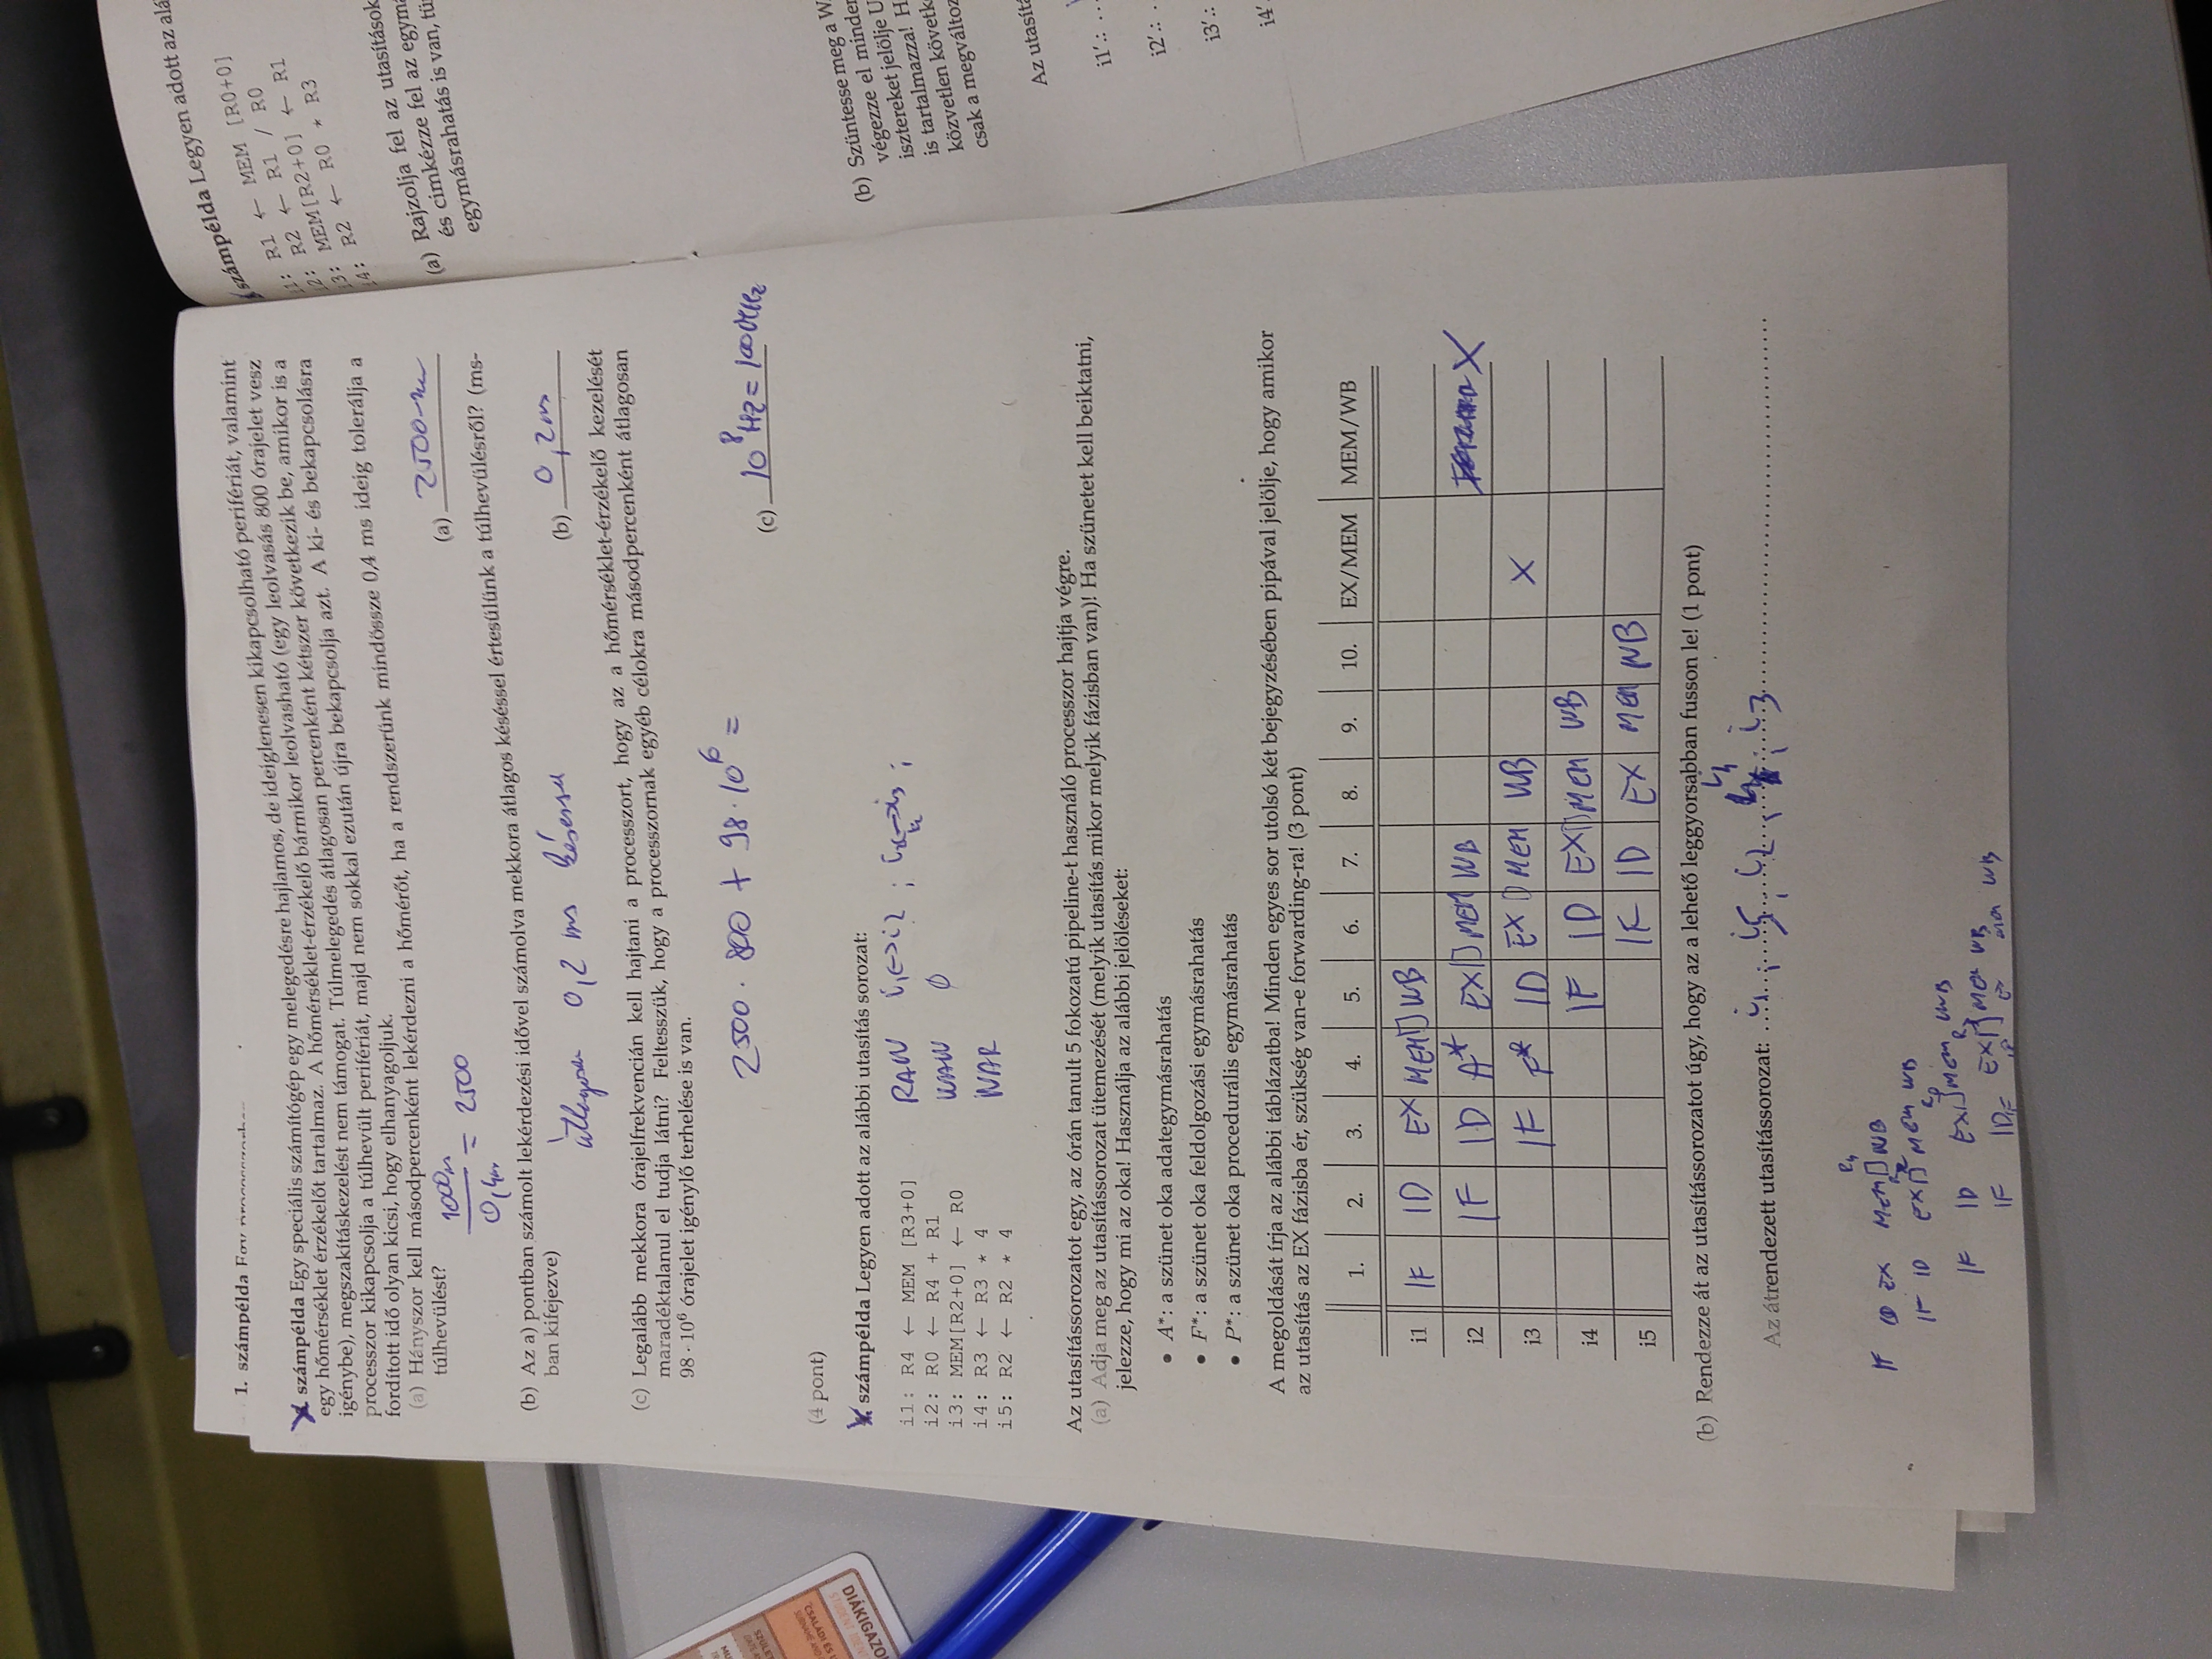 1. számpélda Egy
számpélda Egy speciális számítógép egy melegedésre hajlamos, de ideiglenesen kikapcsolható perifériát, valamint
egy hőmérséklet érzékelőt tartalmaz. A hőmérséklet-érzékelő bármikor leolvasható (egy leolvasás 800 órajelet vesz
igénybe), megszakításkezelést nem támogat. Túlmelegedés átlagosan percenként kétszer következik be, amikor is a
processzor kikapcsolja a túlhevült perifériát, majd nem sokkal ezután újra bekapcsolja azt. A ki- és bekapcsolásra
fordított idő olyan kicsi, hogy elhanyagoljuk.
(a) Hányszor kell másodpercenként lekérdezni a hőmérőt, ha a rendszerünk mindössze 0,4 ms ideig tolerálja a
túlhevülést?
1000ms
0,4ms
= 2500
(a) 2500
(b) Az a) pontban számolt lekérdezési idővel számolva mekkora átlagos késéssel értesülünk a túlhevülésről? (ms-
ban kifejezve)
átlagosan 0,2 ms késéssel
(b) 0,2ms
(c) Legalább mekkora órajelfrekvencián kell hajtani a processzort, hogy az a hőmérséklet-érzékelő kezelését
maradéktalanul el tudja látni? Feltesszük, hogy a processzornak egyéb célokra másodpercenként átlagosan
98 · 10⁶ órajelet igénylő terhelése is van.
2500 · 800 + 98 · 10⁶ =
(c) 10⁸ Hz = 100MHz
(4 pont)
számpélda Legyen adott az alábbi utasítás sorozat:
i1: R4 ← MEM [R3+0]
i2: R0 ← R4 + R1
i3: MEM[R2+0] ← R0
i4: R3 ← R3 * 4
i5: R2 ← R2 * 4
RAW i1↔i2 ;
WAW ∅
WAR
Az utasítássorozatot egy, az órán tanult 5 fokozatú pipeline-t használó processzor hajtja végre.
(a) Adja meg az utasítássorozat ütemezését (melyik utasítás mikor melyik fázisban van)! Ha szünetet kell beiktatni,
jelezze, hogy mi az oka! Használja az alábbi jelöléseket:
• A*: a szünet oka adategymásrahatás
• F*: a szünet oka feldolgozási egymásrahatás
• P*: a szünet oka procedurális egymásrahatás
A megoldását írja az alábbi táblázatba! Minden egyes sor utolsó két bejegyzésében pipával jelölje, hogy amikor
az utasítás az EX fázisba ér, szükség van-e forwarding-ra! (3 pont)
1. 2. 3. 4. 5. 6. 7. 8. 9. 10. EX/MEM MEM/WB
i1 IF ID EX MEM WB
i2 IF ID A* EX MEM WB X
i3 IF F* ID EX MEM WB X
i4 IF ID EX MEM WB
i5 IF ID EX MEM WB
(b) Rendezze át az utasítássorozatot úgy, hogy az a lehető leggyorsabban fusson le! (1 pont)
Az átrendezett utasítássorozat: i1, i5, i2, i4, i3
R4
IF ID EX MEM WB
IF ID EX MEM WB
IF ID EX MEM WB
IF ID EX MEM WB
számpélda Legyen adott az alá
i1: R1 ← MEM [R0+0]
i2: R2 ← R1 / R0
i3: MEM[R2+0] ← R1
i4: R2 ← R0 * R3
(a) Rajzolja fel az utasítások
és cimkézze fel az egymá
egymásrahatás is van, tü
(b) Szüntesse meg a W
végezze el minden
isztereket jelölje U
is tartalmazza! H
közvetlen követk
csak a megváltoz
Az utasítá
i1'.: ...
i2'.: .
i3'.:
i4'.
DIÁKIGAZOL
STUDENT IDENT
CSALÁDI ÉS U
SZÜLET